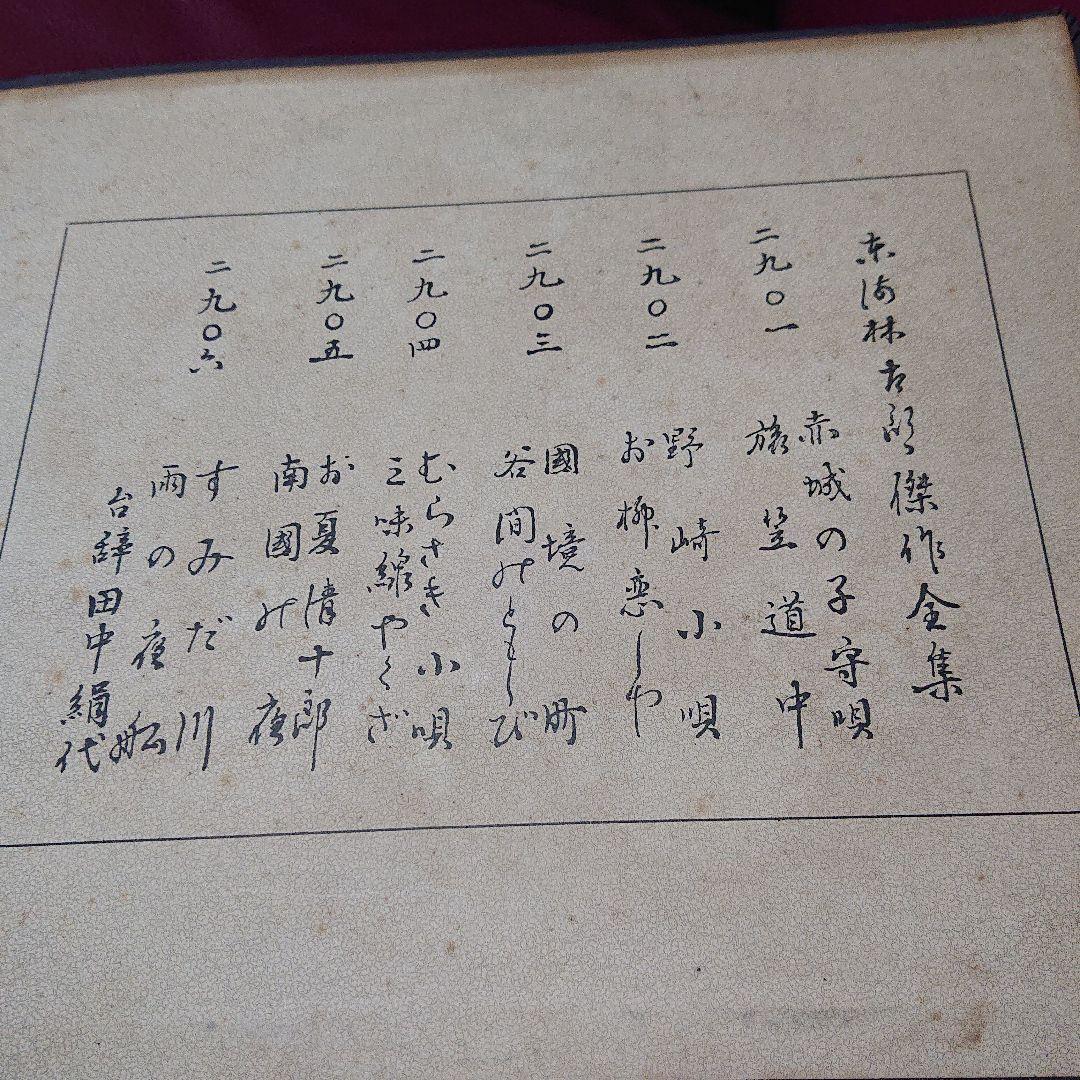 東海林太郎傑作全集
二九〇一
赤城の子守唄
旅笠道中
二九〇二
野崎小唄
お柳恋しや
二九〇三
國境の町
谷間のともしび
二九〇四
むらさき小唄
三味線やくざ
二九〇五
お夏清十郎
南國の夜
二九〇六
すみだ川
雨の夜船
台辞田中絹代